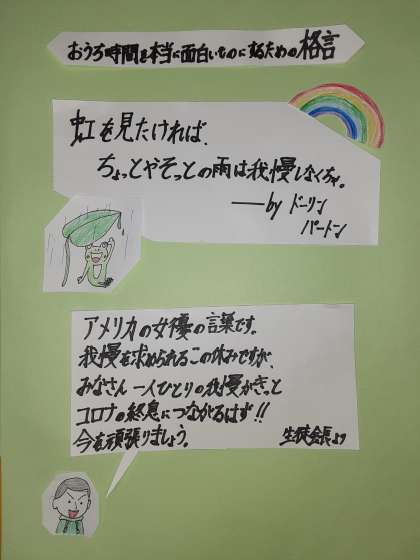 おうち時間を本当に面白いものにするための格言
虹を見たければ、
ちょっとやそっとの雨は我慢しなくちゃ。
――by ドーリン
パートン
アメリカの女優の言葉です。
我慢を求められるこの休みですが、
みなさん一人ひとりの我慢がきっと
コロナの終息につながるはず!!
今を頑張りましょう。
生徒会長より